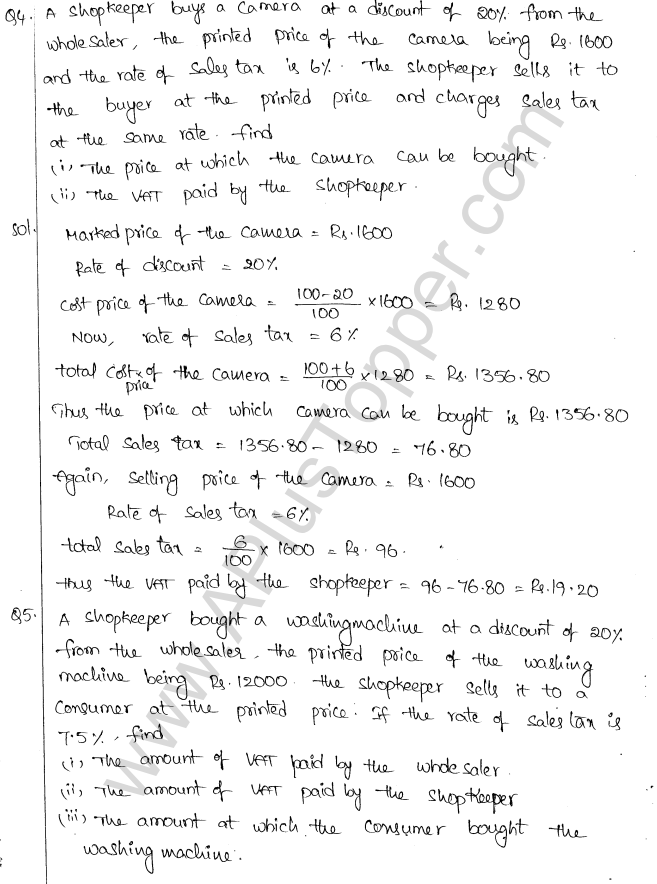 Q4. A shopkeeper buys a camera at a discount of 20% from the
wholesaler, the printed price of the camera being Rs. 1600
and the rate of sales tax is 6%. The shopkeeper sells it to
the buyer at the printed price and charges sales tax
at the same rate. find
(i) The price at which the camera can be bought.
(ii) The VAT paid by the shopkeeper.
Sol. Marked price of the camera = Rs. 1600
Rate of discount = 20%.
Cost price of the camera = 100-20/100 × 1600 = Rs. 1280
Now, rate of sales tax = 6%
total cost price of the camera = 100+6/100 × 1280 = Rs. 1356.80
Thus the price at which camera can be bought is Rs. 1356.80
Total sales tax = 1356.80 - 1280 = 76.80
Again, selling price of the camera = Rs. 1600
Rate of sales tax = 6%
total sales tax = 6/100 × 1600 = Rs. 96.
thus the VAT paid by the shopkeeper = 96 - 76.80 = Rs. 19.20
Q5. A shopkeeper bought a washingmachine at a discount of 20%
from the wholesaler, the printed price of the washing
machine being Rs. 12000. the shopkeeper sells it to a
Consumer at the printed price. If the rate of sales tax is
7.5%, find
(i) The amount of VAT paid by the wholesaler.
(ii) The amount of VAT paid by the shopkeeper
(iii) The amount at which the consumer bought the
washing machine.
www.APlusTopper.com